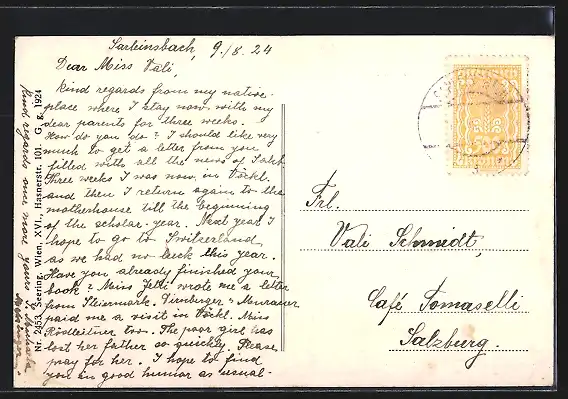 Sarleinsbach, 9./8. 24
Dear Miss Vali,
Kind regards from my native-
place where I stay now with my
dear parents for three weeks.
How do you do? I should like very
much to get a letter from you
filled with all the news of Salzb.
Three weeks I was now in Vöckl.
and then I return again to the
motherhouse till the beginning
of the scholar-year. Next year I
hope to go to Switzerland,
as we had no luck this year.
Have you already finished your
book? Miss Zelli wrote me a letter
from Steiermark. Dirnberger - Murauer
paid me a visit in Vöckl. Miss
Rödleitner too. The poor girl has
lost her father so quickly. Please
pray for her. I hope to find
you in good humor as usual-
Kind regards once more yours
Nr. 2453. Seering, Wien, XVI., Hasnerstr. 101. G. g. 1924
Frl.
Vali Schmidt,
Café Tomaselli
Salzburg.